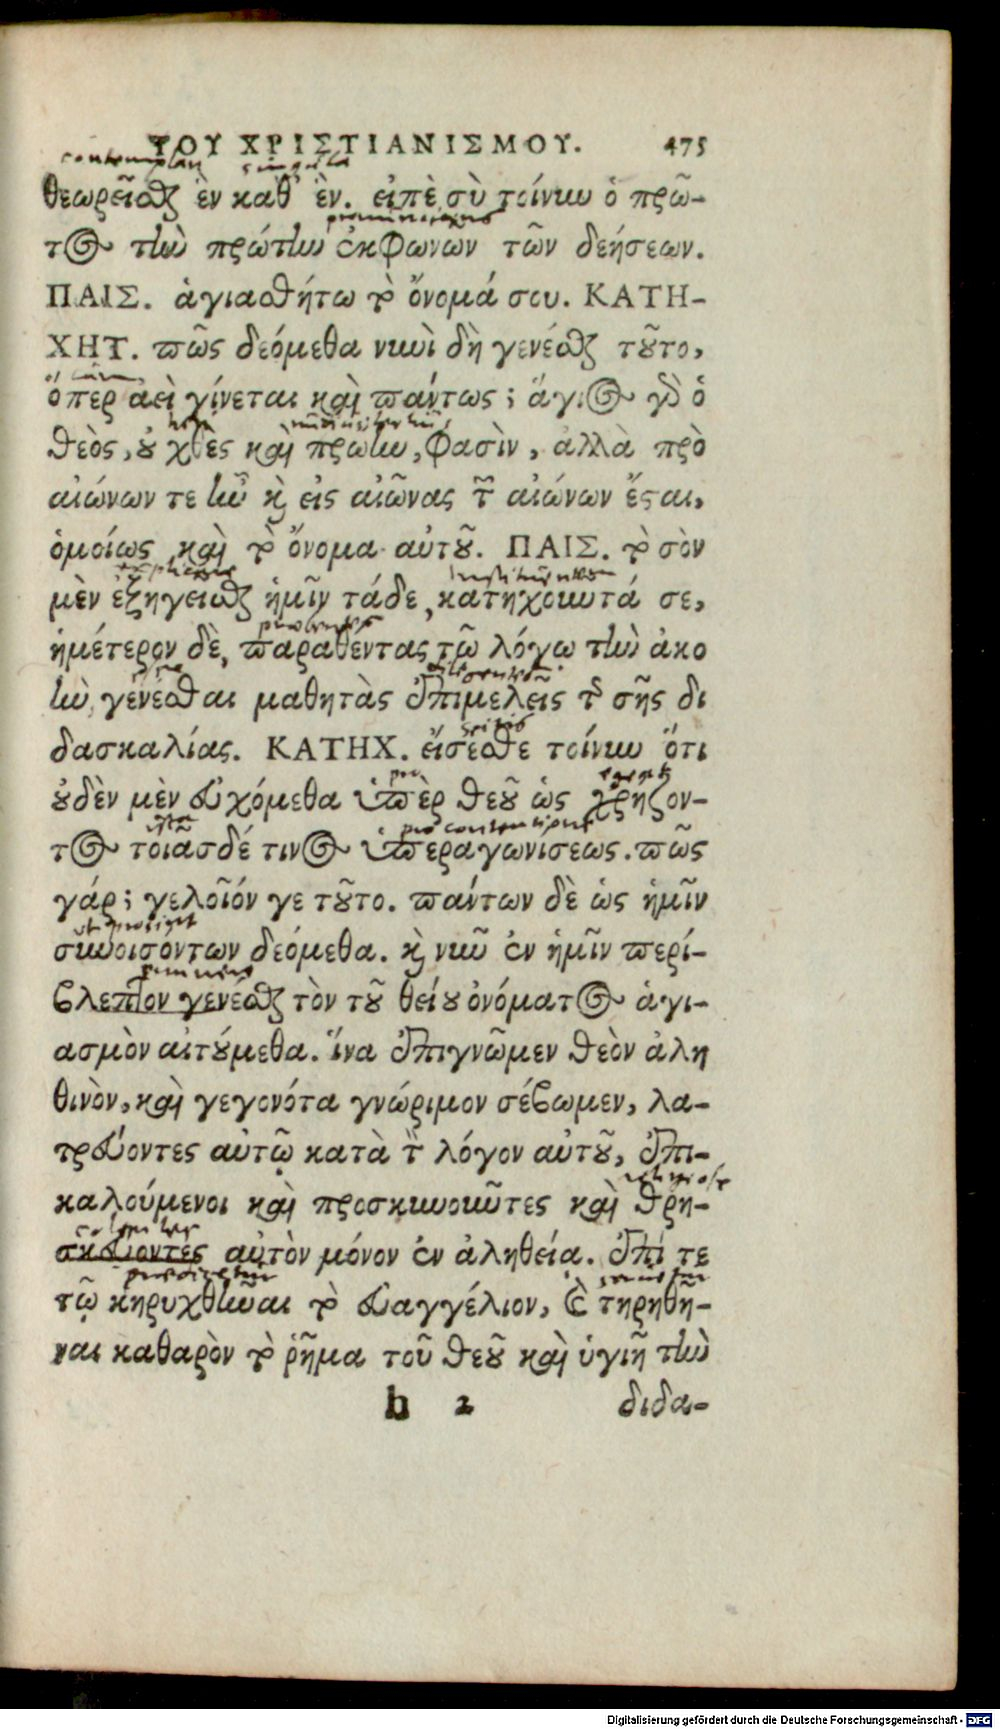 ΤΟΥ ΧΡΙΣΤΙΑΝΙΣΜΟΥ. 475
contemplari singula
θεωρεῖσθαι ἓν καθ' ἓν. εἰπὲ σὺ τοίνυν ὁ πρῶ-
τος τὴν πρώτην ἐκφωνῶν τῶν δεήσεων.
ΠΑΙΣ. ἁγιασθήτω τὸ ὄνομά σου. ΚΑΤΗ-
ΧΗΤ. πῶς δεόμεθα νυνὶ δὴ γενέσθαι τοῦτο,
ὅπερ ἀεὶ γίνεται καὶ πάντως; ἅγιος γὰρ ὁ
heri nudius tertius
θεὸς, οὐ χθὲς καὶ πρώην, φασὶν, ἀλλὰ πρὸ
αἰώνων τε ἦν καὶ εἰς αἰῶνας τῶν αἰώνων ἔσται,
ὁμοίως καὶ τὸ ὄνομα αὐτοῦ. ΠΑΙΣ. τὸ σὸν
μὲν ἐξηγεῖσθαι ἡμῖν τάδε, κατηχοῦντά σε,
ἡμέτερον δὲ, παραθέντας τῷ λόγῳ τὴν ἀκο
ὴν, γενέσθαι μαθητὰς ἐπιμελεῖς τῆς σῆς δι
scitis
δασκαλίας. ΚΑΤΗΧ. εἴσεσθε τοίνυν ὅτι
pro
οὐδὲν μὲν εὐχόμεθα ὑπὲρ θεοῦ ὡς χρήζον-
τος τοιᾶσδέ τινος ὑπεραγωνίσεως. πῶς
γάρ; γελοῖόν γε τοῦτο. πάντων δὲ ὡς ἡμῖν
συνοισόντων δεόμεθα. καὶ νῦν ἐν ἡμῖν περί-
βλεπτον γενέσθαι τὸν τοῦ θείου ὀνόματος ἁγι-
ασμὸν αἰτούμεθα. ἵνα ἐπιγνῶμεν θεὸν ἀλη
θινὸν, καὶ γεγονότα γνώριμον σέβωμεν, λα-
τρεύοντες αὐτῷ κατὰ τὸν λόγον αὐτοῦ, ἐπι-
καλούμενοι καὶ προσκυνοῦντες καὶ θρη-
σκεύοντες αὐτὸν μόνον ἐν ἀληθείᾳ. ἐπί τε
τῷ κηρυχθῆναι τὸ εὐαγγέλιον, καὶ τηρηθῆ-
ναι καθαρὸν τὸ ῥῆμα τοῦ θεοῦ καὶ ὑγιῆ τὴν
h 2 διδα-
Digitalisierung gefördert durch die Deutsche Forschungsgemeinschaft - DFG